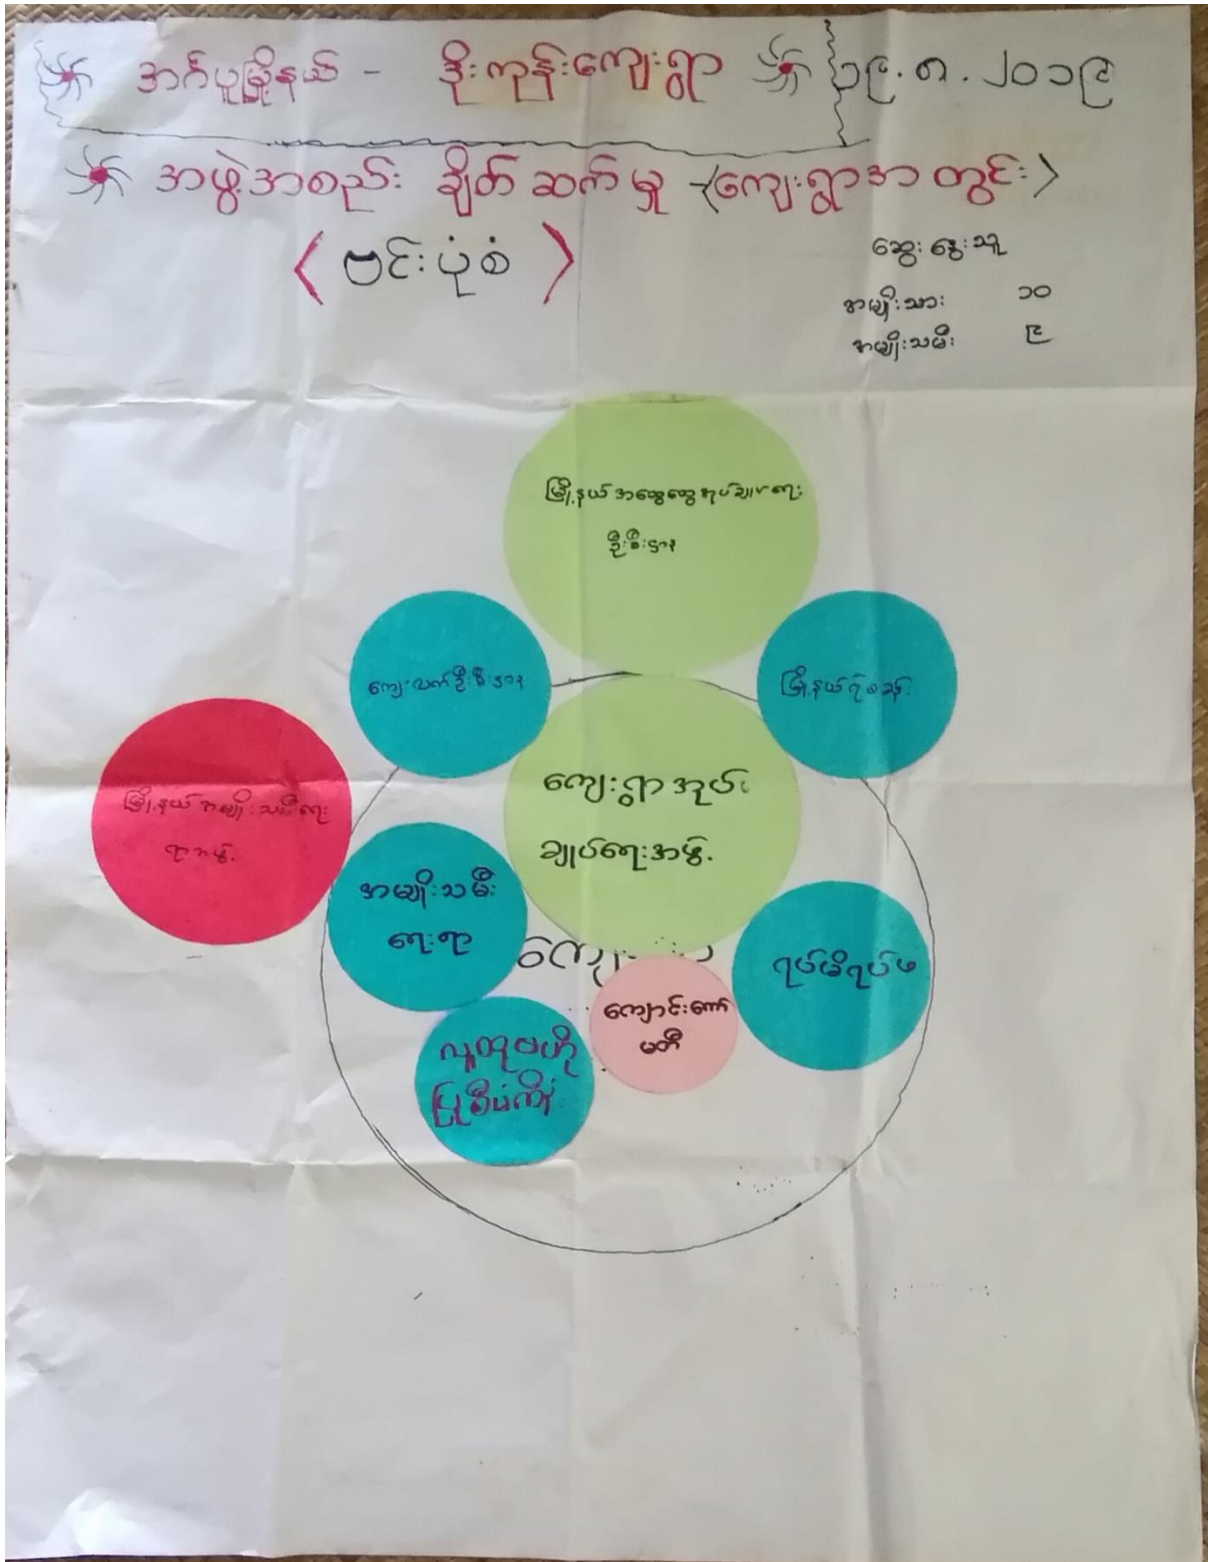 အင်္ဂပူမြို့နယ် - ဒိုးကုန်းကျေးရွာ ၁၉.၈.၂၀၁၉
အဖွဲ့အစည်း ချိတ်ဆက်မှု - (ကျေးရွာအတွင်း)
(ဗင်းပုံစံ)
ဆွေးနွေးသူ
အမျိုးသား ၁၀
အမျိုးသမီး ၉
မြို့နယ်အထွေထွေအုပ်ချုပ်ရေး
ဦးစီးဌာန
ကျေးလက်ဦးစီးဌာန
မြို့နယ်ရဲစခန်း
ကျေးရွာအုပ်
ချုပ်ရေးအဖွဲ့
မြို့နယ်အမျိုးသမီးရေး
ရာအဖွဲ့
အမျိုးသမီး
ရေးရာ
ရပ်မိရပ်ဖ
ကျောင်းကော်
မတီ
လူထုဗဟို
ပြုစီမံကိန်း